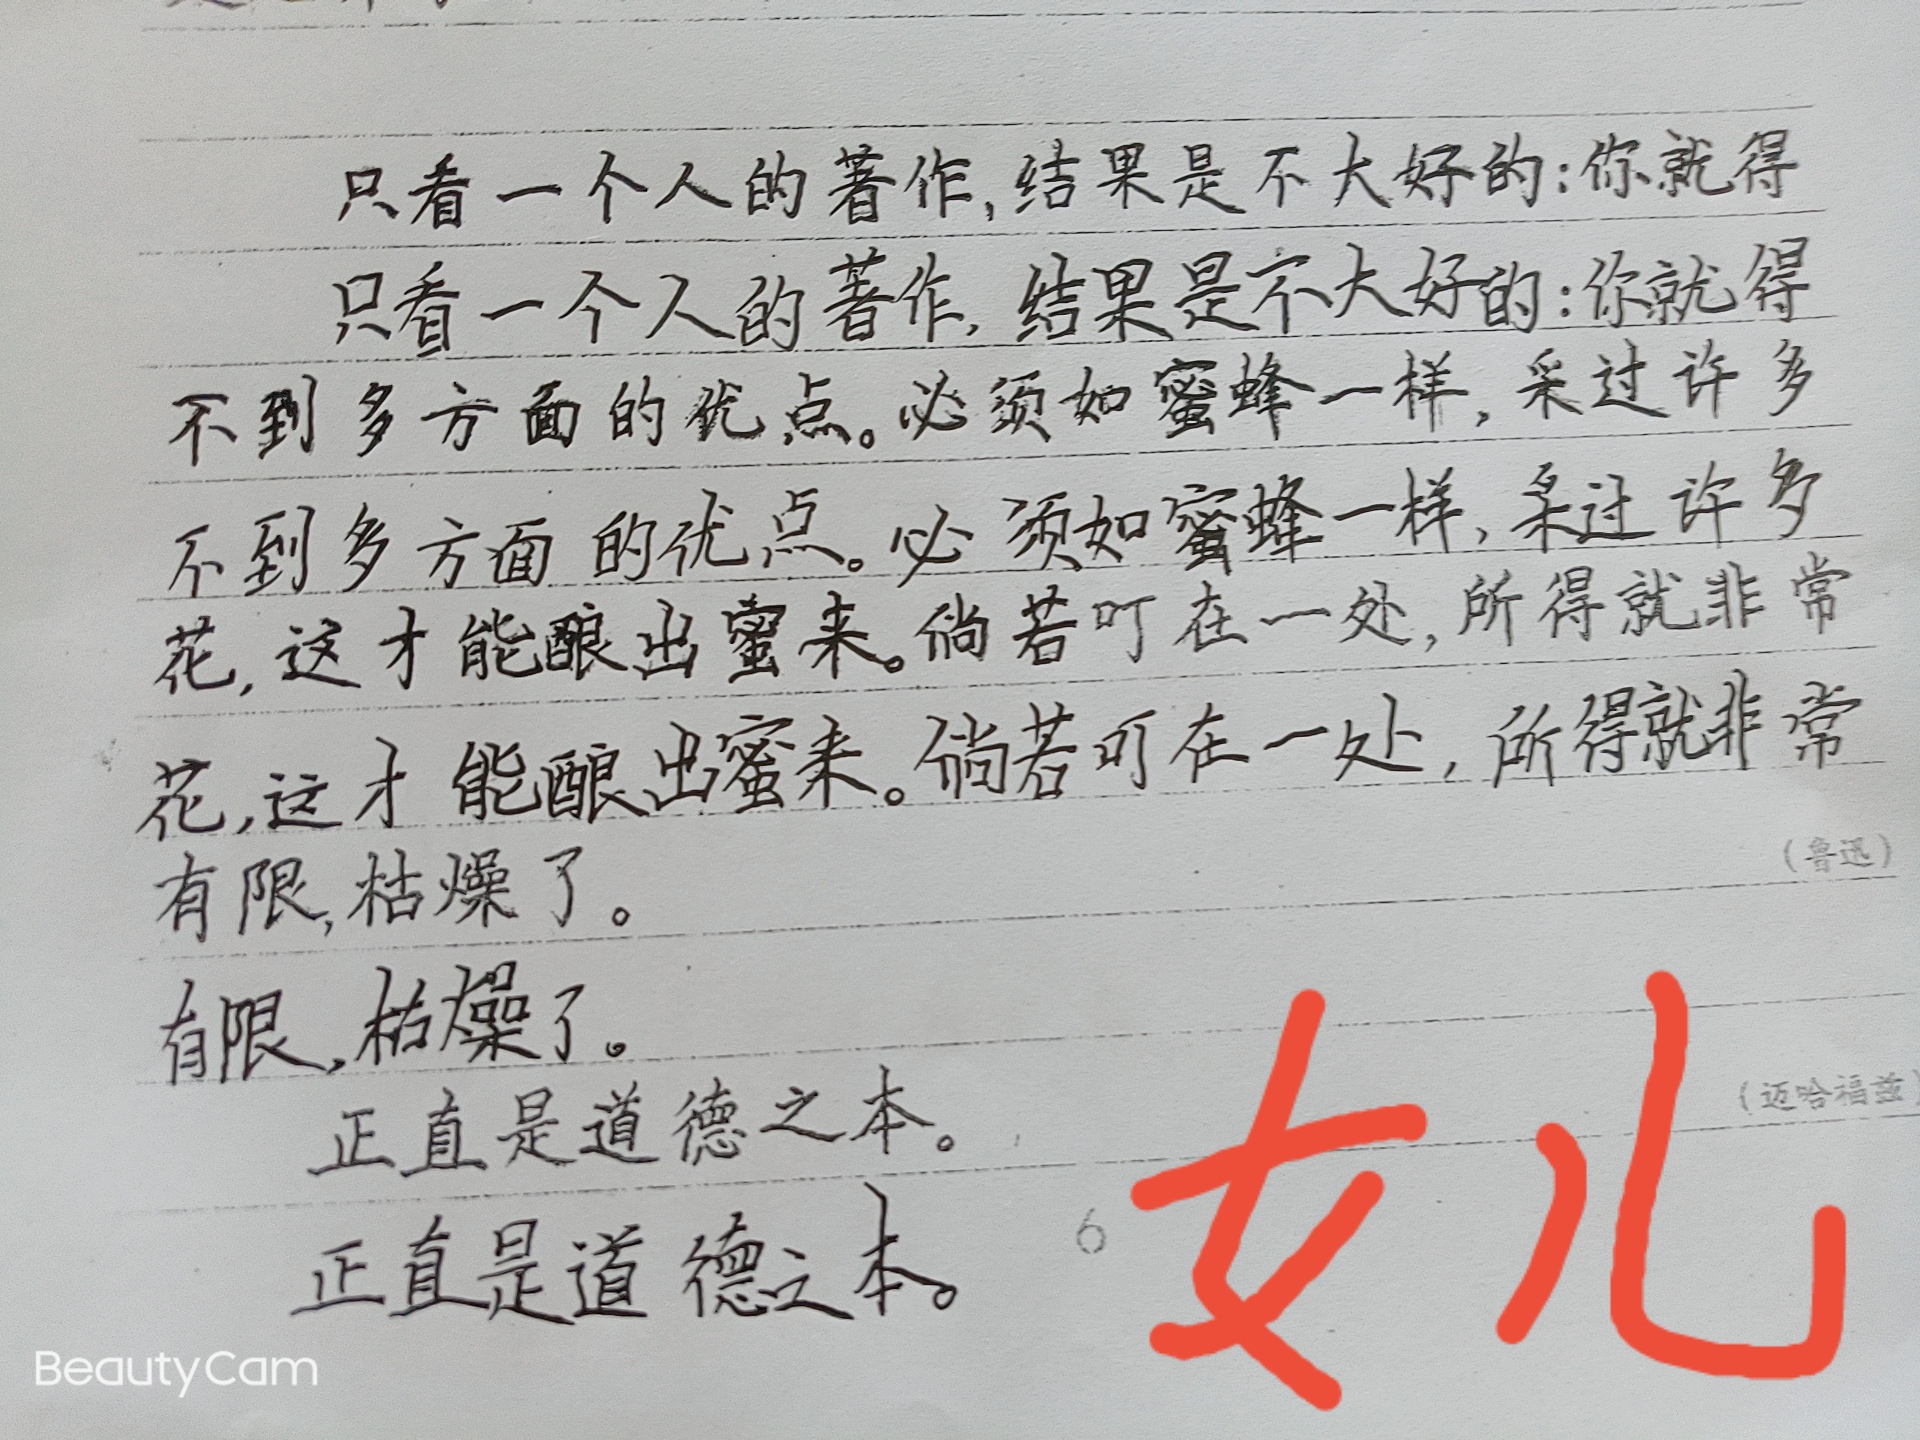 只看一个人的著作,结果是不大好的:你就得
只看一个人的著作,结果是不大好的:你就得
不到多方面的优点。必须如蜜蜂一样,采过许多
不到多方面的优点。必须如蜜蜂一样,采过许多
花,这才能酿出蜜来。倘若叮在一处,所得就非常
花,这才能酿出蜜来。倘若叮在一处,所得就非常
有限,枯燥了。
(鲁迅)
有限,枯燥了。
正直是道德之本。
(迈哈福兹)
正直是道德之本。
6
女儿
BeautyCam